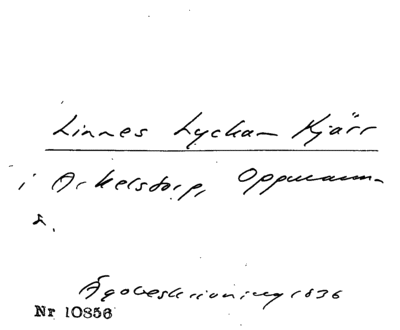 Linnes Lyckan Kjärr
i Arkelstorp, Oppmanna-
s.
Ägobeskrivning 1836
Nr 10856